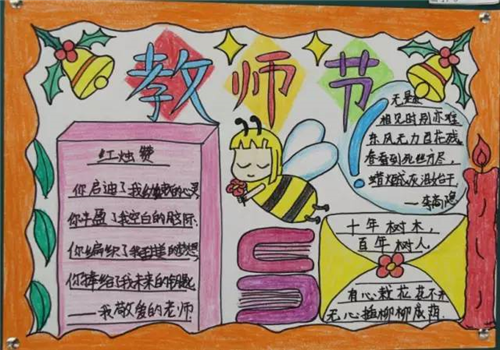 教师节
红烛赞
你启迪了我幼稚的心灵
你丰盈了我空白的脑际
你编织了我的梦想
你给了我未来的
——我敬爱的老师
无题
相见时别亦难
东风无力百花残
春蚕到死丝方尽,
蜡炬成灰泪始干
——李商隐
十年树木,
百年树人.
有心栽花花不开
无心插柳柳成荫.